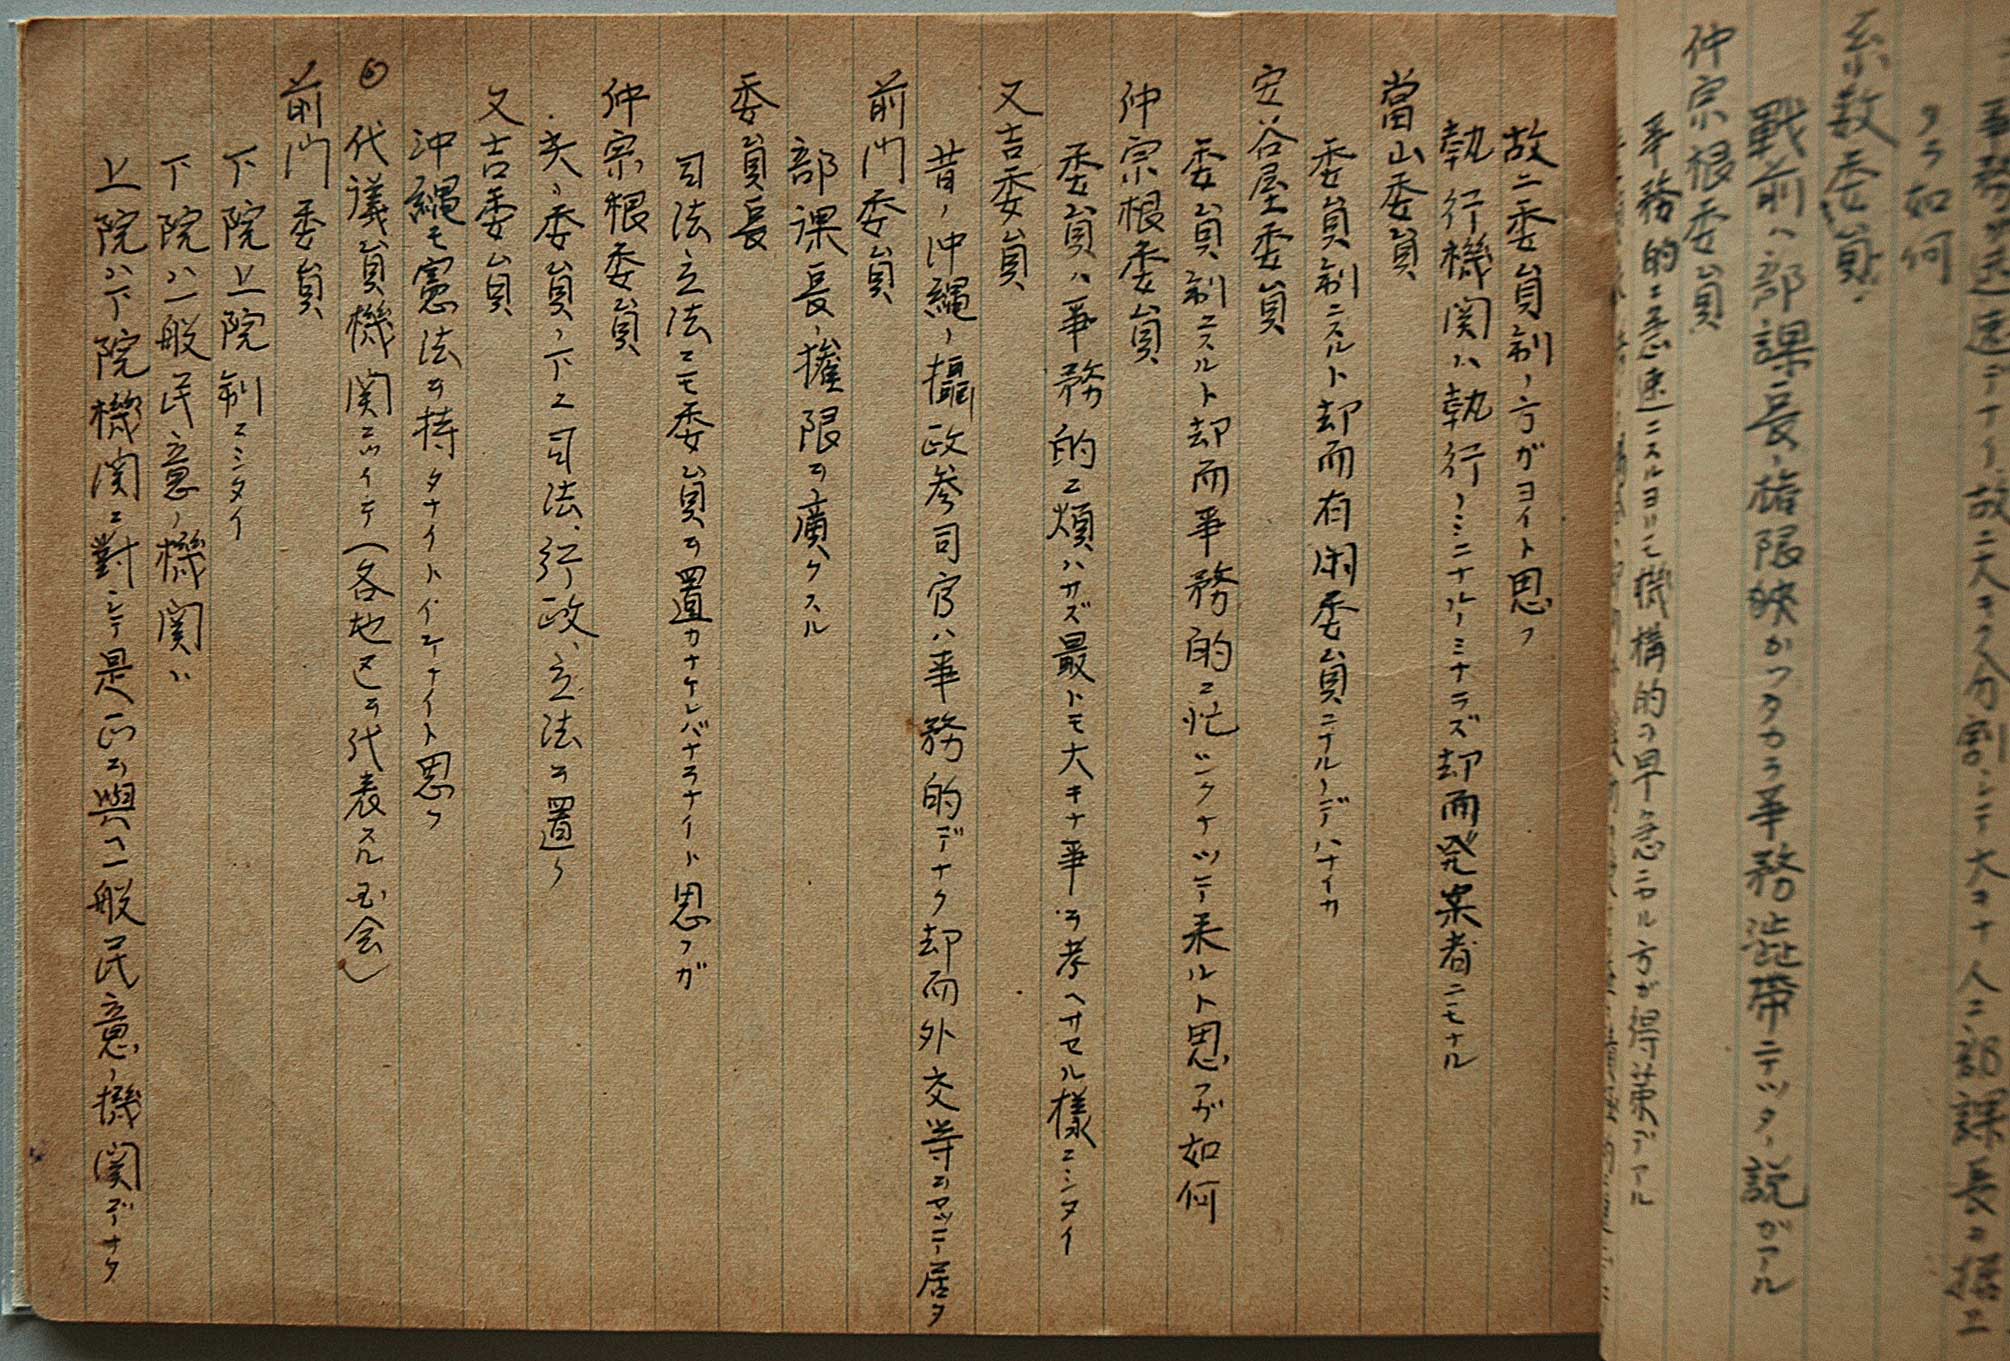 タラ如何
糸数委員
戦前ハ部課長ノ権限狭かツタカラ事務渋帯シテツタノ説ガアル
仲宗根委員
事務的ニ急速ニスルヨリモ機構的の早ク急ニヤル方が得策デアル
故ニ委員制ノ方ガヨイト思フ
執行機関ハ執行ノミニナルノミナラズ却而発案者ニモナル
當山委員
委員制ニスルト却而有閑委員ニナルノデハナイカ
安谷屋委員
委員制ニスルト却而事務的ニ忙シクナツテ来ルト思フガ如何
仲宗根委員
委員ハ事務的ニ煩ハサズ最トモ大キナ事ヲ考ヘサセル様ニシタイ
又吉委員
昔ノ沖縄ノ攝政参司官ハ事務的デナク却而外交等ヲヤツテ居タ
前門委員
部課長ノ権限ヲ廣クスル
委員長
司法立法ニモ委員ヲ置カナケレバナラナイト思フガ
仲宗根委員
夫々委員ノ下ニ司法、行政、立法ヲ置ク
又吉委員
沖縄モ憲法ヲ持タナイトイケナイト思フ
◎代議員機関ニツイテ(各地区ヲ代表スル 会)
前門委員
下院上院制ニシタイ
下院ハ一般民意ノ機関ハ
上院ハ下院機関ニ對シテ是正ヲ與ヘ一般民意ノ機関デナク